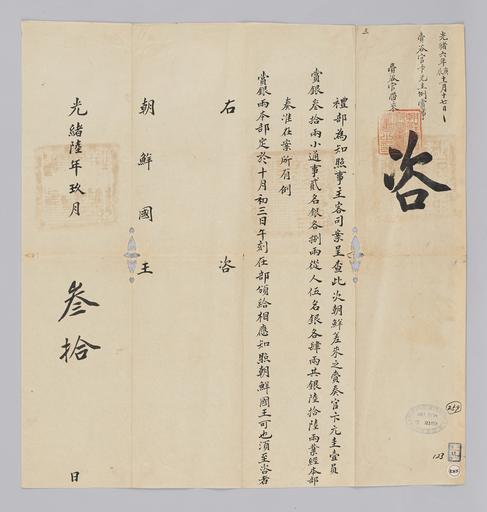 光緒六年庚辰十一月十七日
賫咨官卞元圭
賫咨官賫來
咨
禮部為知照事主客司案呈查此次朝鮮差來之賫奏官卞元圭壹員
賞銀叁拾兩小通事貳名銀各捌兩從人伍名銀各肆兩共銀陸拾陸兩業經本部
奏准在案所有例
賞銀兩本部定於十月初三日午刻在部頒給相應知照朝鮮國王可也須至咨者
右咨
朝鮮國王
光緒陸年玖月叁拾日
259
123